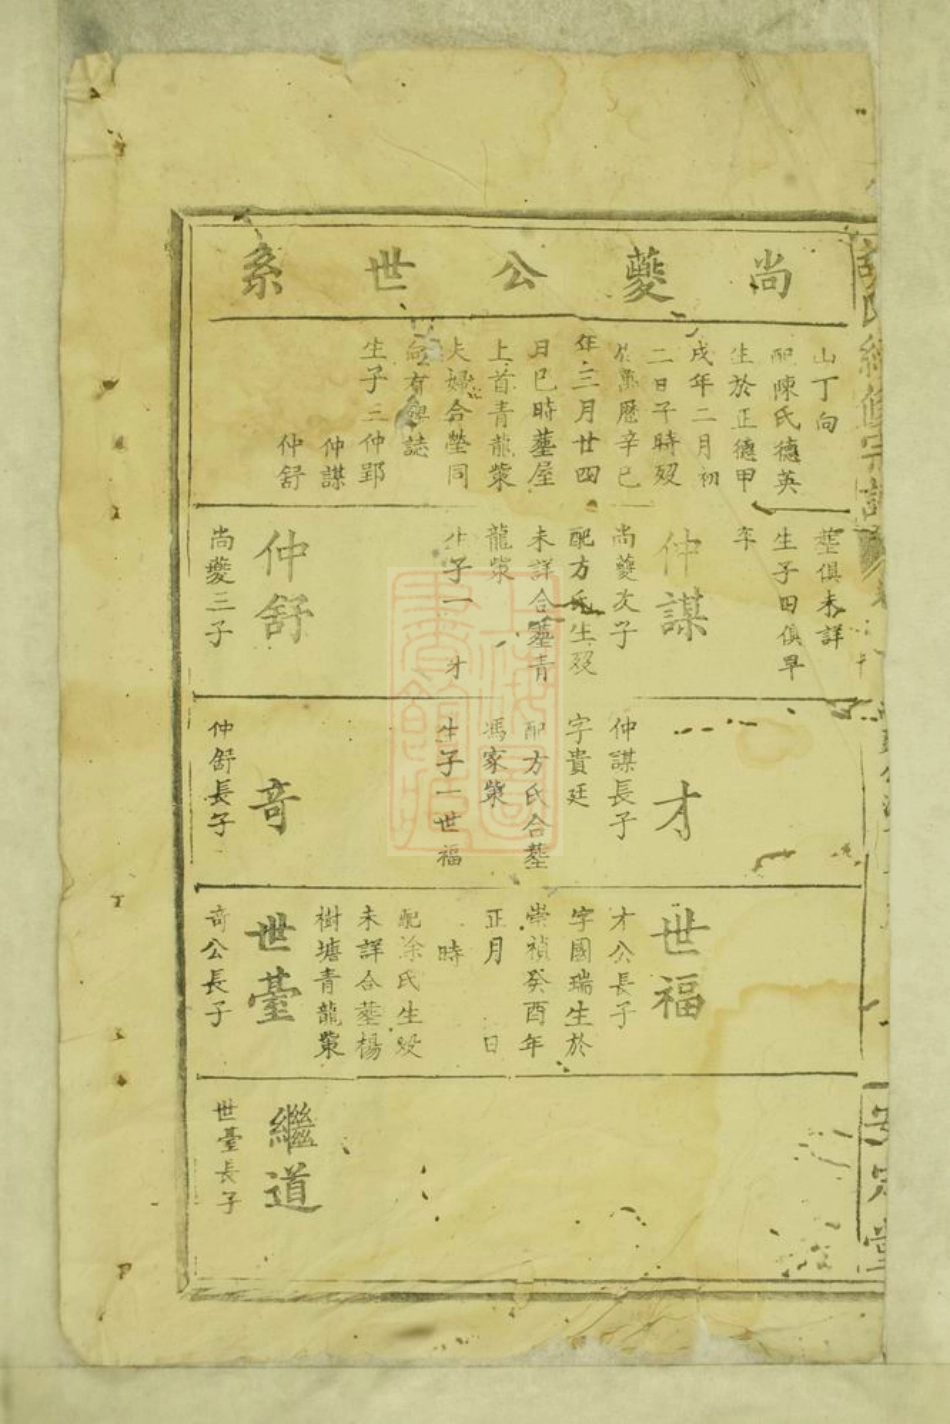 尚夔公世系
山丁向
配陳氏德英
生於正德甲
戌年二月初
二日子時歿
於萬曆辛巳
年三月廿四
日巳時塟屋
上首青龍㟲
夫婦合塋同
向有碑誌
生子三仲郢
仲謀
仲舒
塟俱未詳
生子四俱早
卒
仲謀
尚夔次子
配方氏生歿
未詳合塟青
龍㟲
生子一 才
仲舒
尚夔三子
才
仲謀長子
字貴廷
配方氏合塟
馮家㟲
生子一世福
竒
仲舒長子
世福
才公長子
字國瑞生於
崇禎癸酉年
正月 日
時
配涂氏生歿
未詳合塟楊
樹塘青龍㟲
世臺
竒公長子
繼道
世臺長子
安定堂